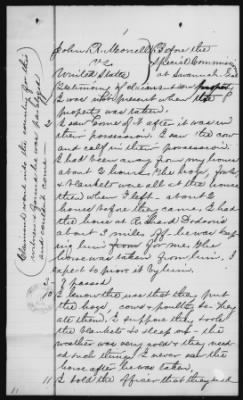 John R. Monell } Before the
vs } Special Commr
United States } at Savannah Ga
Testimony of claimant
I was not present when the
property was taken.
2 I saw some of it after it was in
their possession. I saw the cow
and calf in their possession.
I had been away from my house
about 2 hours. The hogs,
& blankets were all at the house
then when I left - about 2
hours before they came. I had
the horse at
about 3 miles off he was keep-
ing him for me. The
horse was taken from him. I
expect to prove it by him.
3- 9 passed
10 I know the was that they put
the hogs, cows & poultry to. They
ate them. I suppose they took
the blankets to sleep on - the
weather was very cold & they need
ed such things. I never saw the
horse after he was taken.
11 I told the officer that they had
Claimant went into the country for the
witness
and could come
11